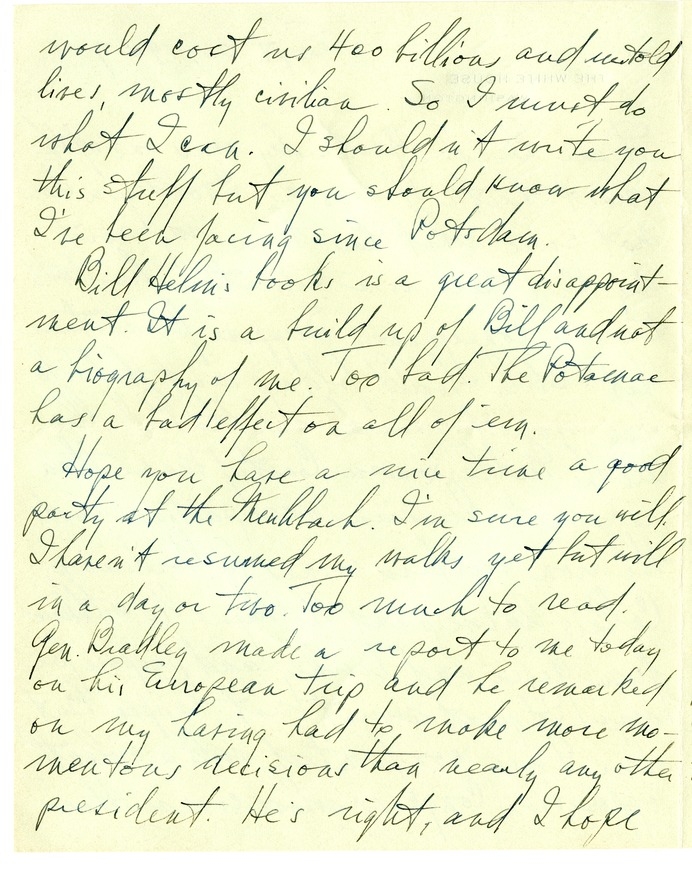 would cost us 400 billions and untold
lives, mostly civilian. So I must do
what I can. I shouldn't write you
this stuff but you should know what
I've been facing since Potsdam.
Bill Helm's books is a great disappoint-
ment. It is a build up of Bill and not
a biography of me. Too bad. The Potomac
has a bad effect on all of 'em.
Hope you have a nice time a good
party at the Muehlbach. I'm sure you will.
I haven't resumed my walks yet but will
in a day or two. Too much to read.
Gen. Bradley made a report to me today
on his European trip and he remarked
on my having had to make more mo-
mentous decisions than nearly any other
president. He's right, and I hope